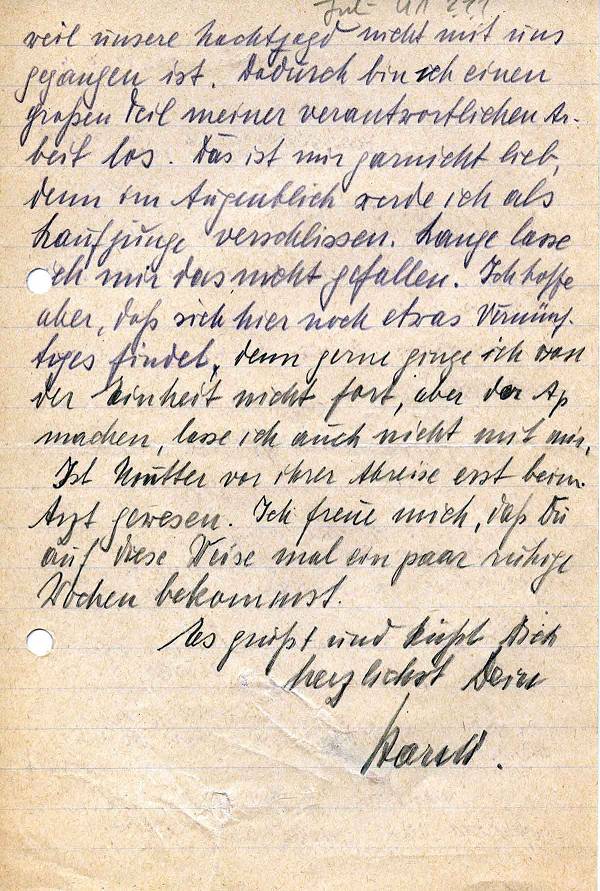 weil unsere Nachtjagd nicht mit uns
gegangen ist. Dadurch bin ich einen
großen Teil meiner verantwortlichen Ar-
beit los. Das ist mir garnicht lieb,
denn im Augenblick werde ich als
Laufjunge verschlissen. Lange lasse
ich mir das nicht gefallen. Ich hoffe
aber, daß sich hier noch etwas Vernünf-
tiges findet, denn gerne ginge ich von
der Einheit nicht fort, aber der Ap
machen, lasse ich auch nicht mit mir.
Ist Mutter vor ihrer Abreise erst beim
Arzt gewesen. Ich freue mich, daß Du
auf diese Weise mal ein paar ruhige
Wochen bekommst.
Es grüßt und küßt Dich
herzlichst Dein